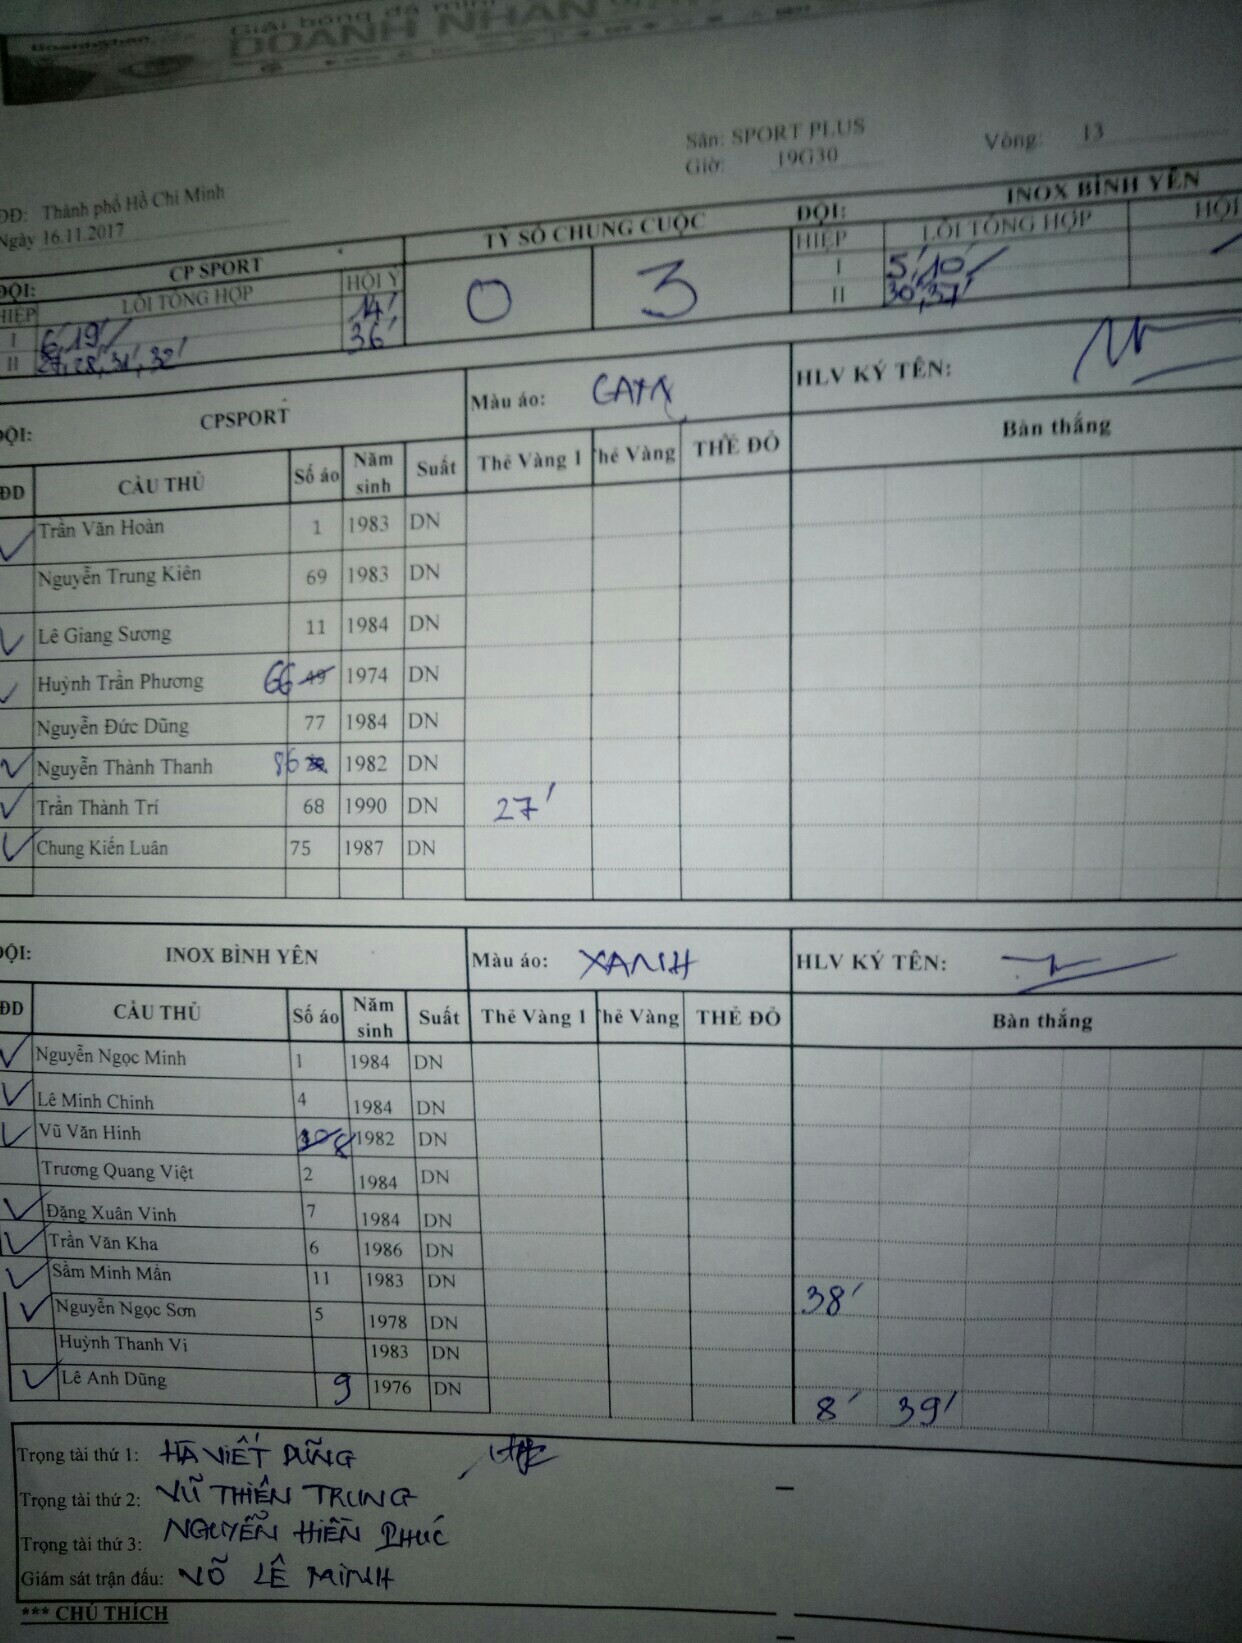 Giải bóng đá mini
DOANH NHÂN
Sân: SPORT PLUS
Vòng: 13
Giờ: 19G30
ĐĐ: Thành phố Hồ Chí Minh
Ngày 16.11.2017
ĐỘI: CP SPORT
TỶ SỐ CHUNG CUỘC
ĐỘI: INOX BÌNH YÊN
HIỆP LỖI TỔNG HỢP HỘI Ý
HIỆP LỖI TỔNG HỢP HỘI
I 6', 19' 14'
0 3
I 5', 10'
II 27', 28', 31', 32' 36'
II 30', 37'
ĐỘI: CPSPORT Màu áo: CAM HLV KÝ TÊN:
ĐD CẦU THỦ Số áo Năm sinh Suất Thẻ Vàng 1 Thẻ Vàng THẺ ĐỎ Bàn thắng
Trần Văn Hoàn 1 1983 DN
Nguyễn Trung Kiên 69 1983 DN
Lê Giang Sương 11 1984 DN
Huỳnh Trần Phương 66 49 1974 DN
Nguyễn Đức Dũng 77 1984 DN
Nguyễn Thành Thanh 86 1982 DN
Trần Thành Trí 68 1990 DN 27'
Chung Kiến Luân 75 1987 DN
ĐỘI: INOX BÌNH YÊN Màu áo: XANH HLV KÝ TÊN:
ĐD CẦU THỦ Số áo Năm sinh Suất Thẻ Vàng 1 Thẻ Vàng THẺ ĐỎ Bàn thắng
Nguyễn Ngọc Minh 1 1984 DN
Lê Minh Chinh 4 1984 DN
Vũ Văn Hinh 8 1982 DN
Trương Quang Việt 2 1984 DN
Đặng Xuân Vinh 7 1984 DN
Trần Văn Kha 6 1986 DN
Sầm Minh Mẫn 11 1983 DN 38'
Nguyễn Ngọc Sơn 5 1978 DN
Huỳnh Thanh Vi 1983 DN
Lê Anh Dũng 9 1976 DN 8' 39'
Trọng tài thứ 1: HÀ VIẾT DŨNG
Trọng tài thứ 2: VŨ THIÊN TRUNG
Trọng tài thứ 3: NGUYỄN HIỀN PHÚC
Giám sát trận đấu: VÕ LÊ MINH
*** CHÚ THÍCH